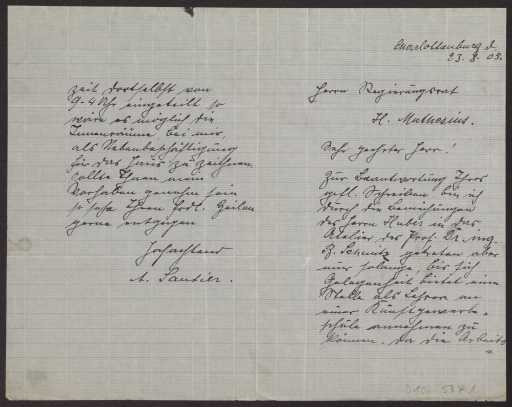 Charlottenburg d.
23.8.03.
Herrn Regierungsrat
H. Muthesius.
Sehr geehrter Herr!
Zur Beantwortung Ihres
gefl. Schreiben bin ich
durch die Bemühungen
des Herrn Huber in das
Atelier des Prof. Dr. ing.
B. Schmitz getreten aber
nur solange, bis sich
Gelegenheit bietet eine
Stelle als Lehrer an
einer Kunstgewerbe-
schule annehmen zu
können. Da die Arbeits
zeit dortselbst von
9-4 Uhr eingeteilt so
wäre es möglich die
Innenräume bei mir,
als Nebenbeschäftigung
für das Haus zu zeichnen
sollte Ihnen mein
Vorhaben genehm sein
so sehe Ihren Zeilen
gerne entgegen
Hochachtend
A.